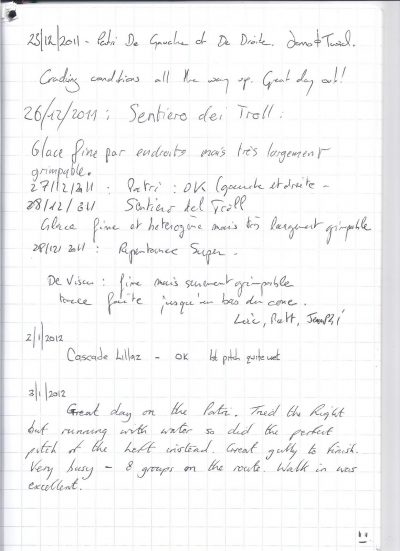 25/12/2011 - Patri De Gauche et De Droite.
Cracking conditions all the way up. Great day out!
26/12/2011: Sentiero dei Troll:
Glace fine par endroits mais très largement
grimpable.
27/12/2011: Patri: OK (gauche et droite -
28/12/2011 Sentiero del Troll
Glace fine et heterogene mais très largement grimpable
28/12/2011: Repentance Super -
De Viseu: fine mais surement grimpable
trace faite jusqu'en bas du cone.
Loïc, Matt,
2/1/2012
Cascade Lillaz - OK 1st pitch quite wet
3/1/2012
Great day on the Patri. Tried the Right
but running with water so did the perfect
pitch of the Left instead. Great gully to finish.
Very busy - 8 groups on the route. Walk in was
excellent.